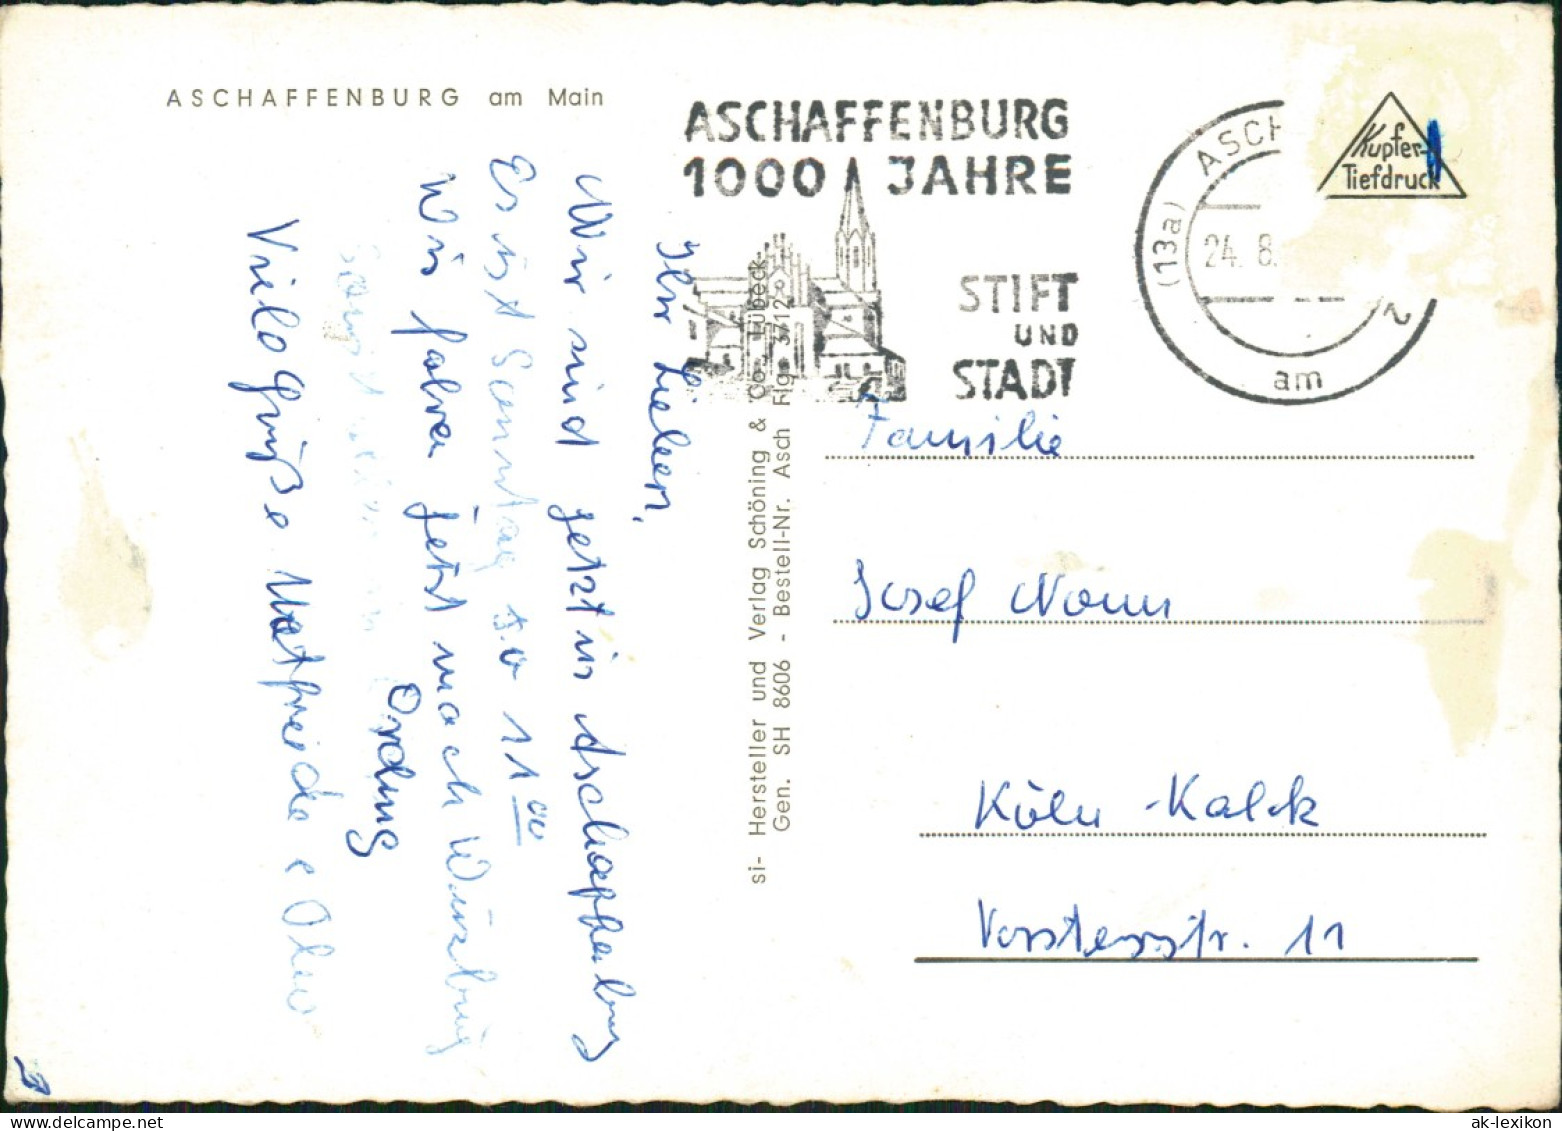 ASCHAFFENBURG am Main
ASCHAFFENBURG
1000 JAHRE
STIFT
UND
STADT
(13a) ASCH
24. 8.
am
2
Kupfer-
Tiefdruck
Ihr Lieben,
Wir sind jetzt in Aschaffenburg
Es ist Sonntag 11 00
Wir fahren jetzt nach Würzburg
sonst
Ordnung
Viele Grüße
si- Hersteller und Verlag Schöning & Co., Lübeck
Gen. SH 8606 - Bestell-Nr. Asch Rig 3712
Familie
Josef Nonn
Köln-Kalk
Vorsterstr. 11
ak-lexikon.com